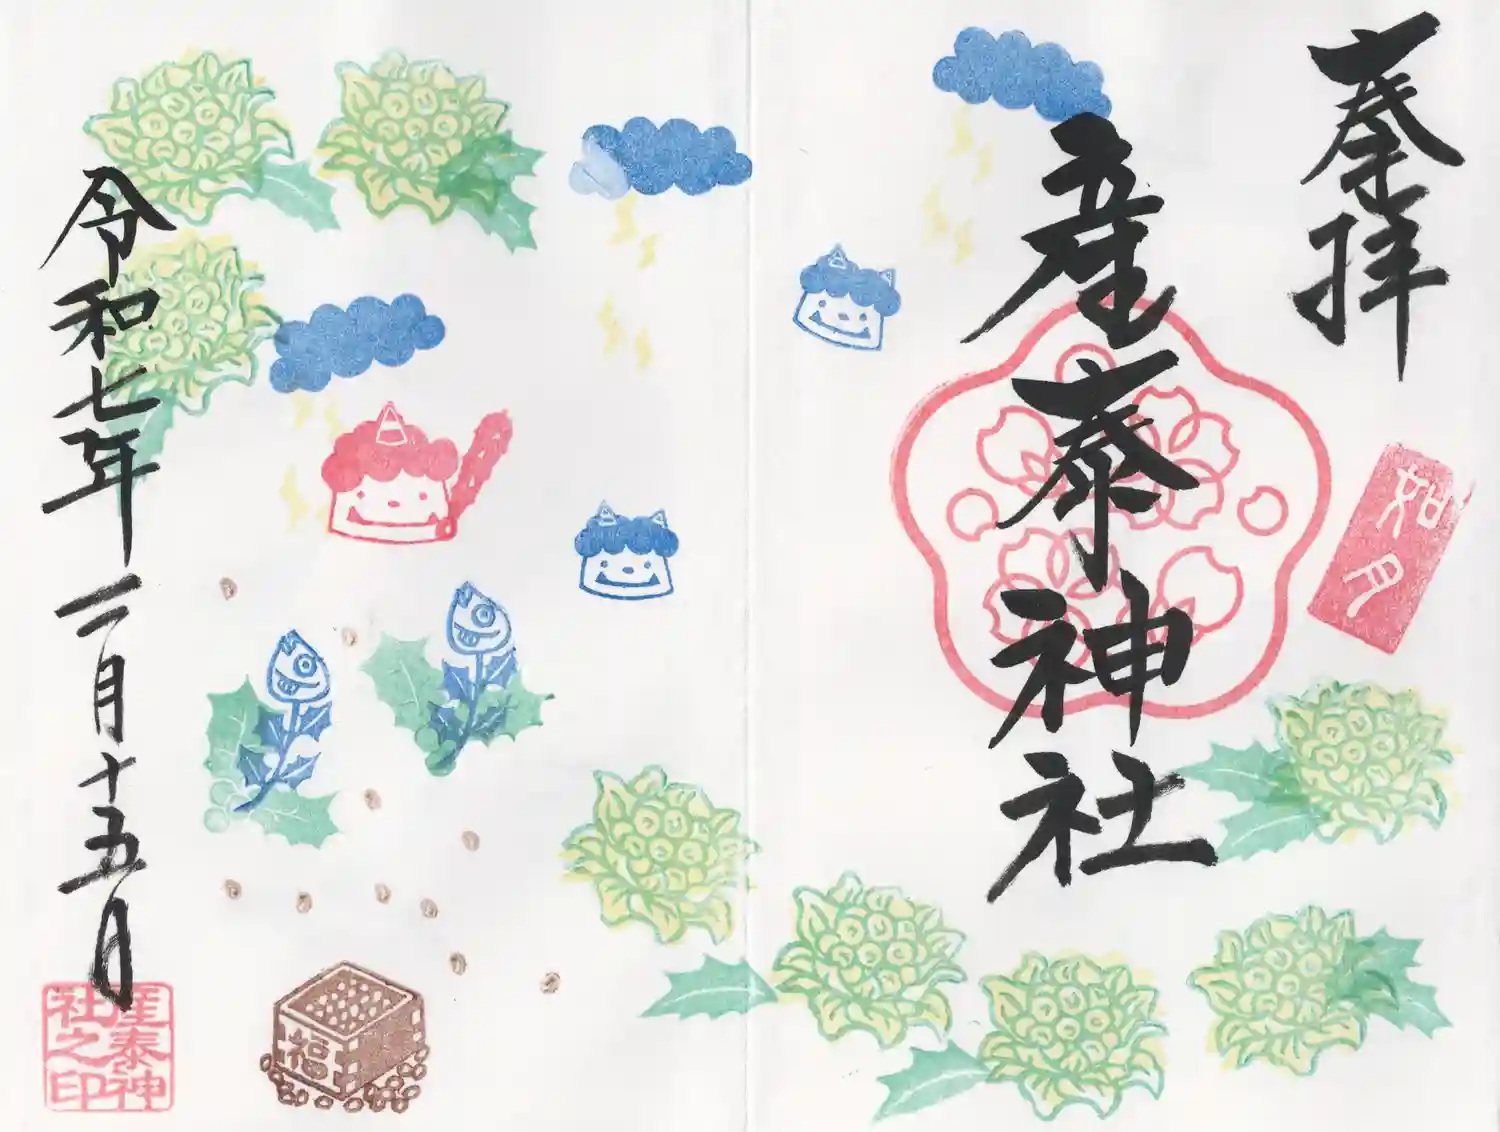 奉拝
如月
産泰神社
福
令和七年二月十五日
産泰神社之印